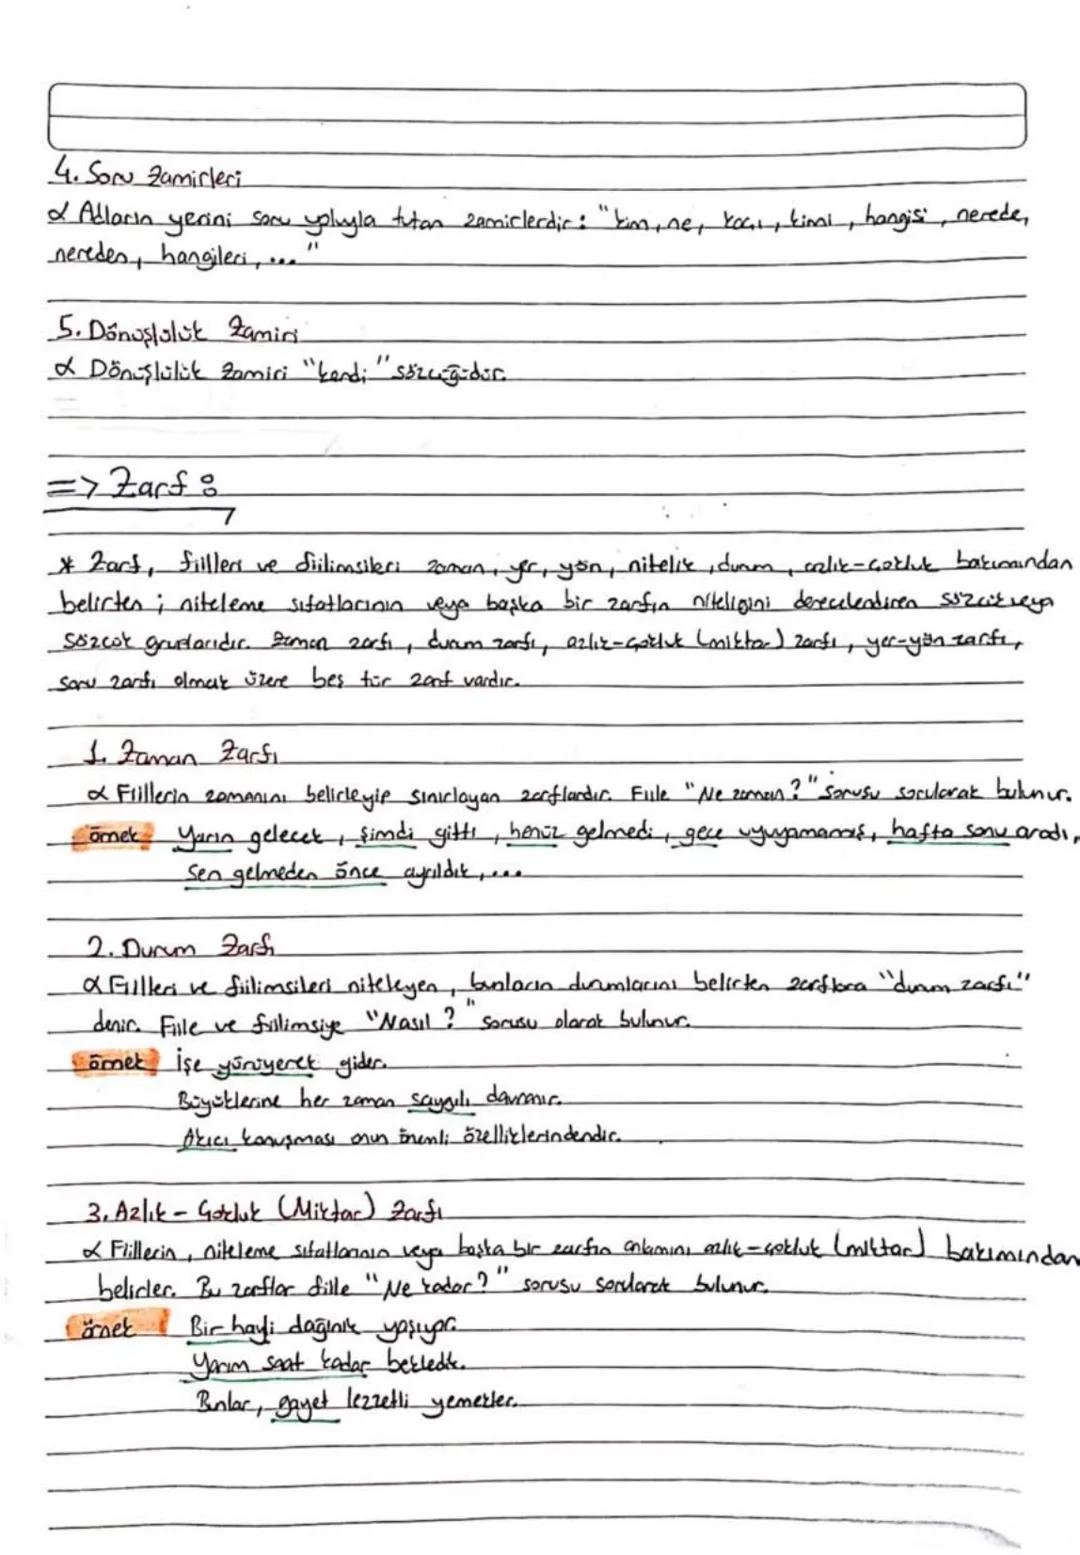 4. Soru Zamirleri
α Adların yerini soru yoluyla tutan zamirlerdir: "kim, ne, kaçı, kimi, hangisi, nerede,
nereden, hangileri, ..."
5. Dönüşlülük Zamiri
α Dönüşlülük zamiri "kendi" sözcüğüdür.
=> Zarf:
* Zarf, fiilleri ve fiilimsileri zaman, yer, yön, nitelik, durum, azlık-çokluk bakımından
belirten; niteleme sıfatlarının veya başka bir zarfın niteliğini derecelendiren sözcük veya
sözcük gruplarıdır. Zaman zarfı, durum zarfı, azlık-çokluk (miktar) zarfı, yer-yön zarfı,
soru zarfı olmak üzere beş tür zarf vardır.
1. Zaman Zarfı
α Fiillerin zamanını belirleyip sınırlayan zarflardır. Fiile "Ne zaman?" sorusu sorularak bulunur.
örnek Yarın gelecek, şimdi gitti, henüz gelmedi, gece uyuyamamış, hafta sonu aradı,
Sen gelmeden önce ayrıldık, ...
2. Durum Zarfı
α Fiilleri ve fiilimsileri niteleyen, bunların durumlarını belirten zarflara "durum zarfı"
denir. Fiile ve fiilimsiye "Nasıl?" sorusu olarak bulunur.
örnek İşe yürüyerek gider.
Büyüklerine her zaman saygılı davranır.
Akıcı konuşması onun önemli özelliklerindendir.
3. Azlık - Çokluk (Miktar) Zarfı
α Fiillerin, niteleme sıfatlarının veya başka bir zarfın anlamını azlık-çokluk (miktar) bakımından
belirler. Bu zarflar fiille "Ne kadar?" sorusu sorularak bulunur.
örnek Bir hayli dağınık yaşıyor.
Yarım saat kadar bekledik.
Bunlar, gayet lezzetli yemekler.